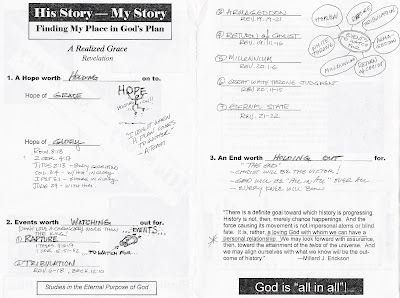 His Story — My Story
Finding My Place in God's Plan
A Realized Grace
Revelation
1. A Hope worth HOLDING on to.
Hope of GRACE
HOPE
Hope of GLORY
ROM. 8:18
2 COR. 4:17
TITUS 2:13
COL. 3:4
1 PET. 5:1
JUDE 24
2. Events worth WATCHING out for.
...EVENTS...
① RAPTURE
... TO WATCH FOR...
② TRIBULATION
REV. 6-18
Studies in the Eternal Purpose of God
③ ARMAGEDDON
REV. 19:19-21
④ RETURN OF CHRIST
REV. 19:11-16
⑤ MILLENNIUM
REV. 20:1-6
⑥ GREAT WHITE THRONE JUDGMENT
REV. 20:11-15
⑦ ETERNAL STATE
REV. 21-22
RAPTURE
TRIBULATION
MILLENNIUM
RETURN OF CHRIST
3. An End worth HOLDING OUT for.
"THE END"
- CHRIST WILL BE THE VICTOR!
- GOD WILL BE "ALL IN ALL" OVER ALL
- EVERY KNEE WILL BOW
"There is a definite goal toward which history is progressing.
History is not, then, merely chance happenings. And the
force causing its movement is not impersonal atoms or blind
fate. It is, rather, a loving God with whom we can have a
personal relationship. We may look forward with assurance,
then, toward the attainment of the telos of the universe. And
we may align ourselves with what we know will be the out-
come of history." —Millard J. Erickson
God is "all in all"!